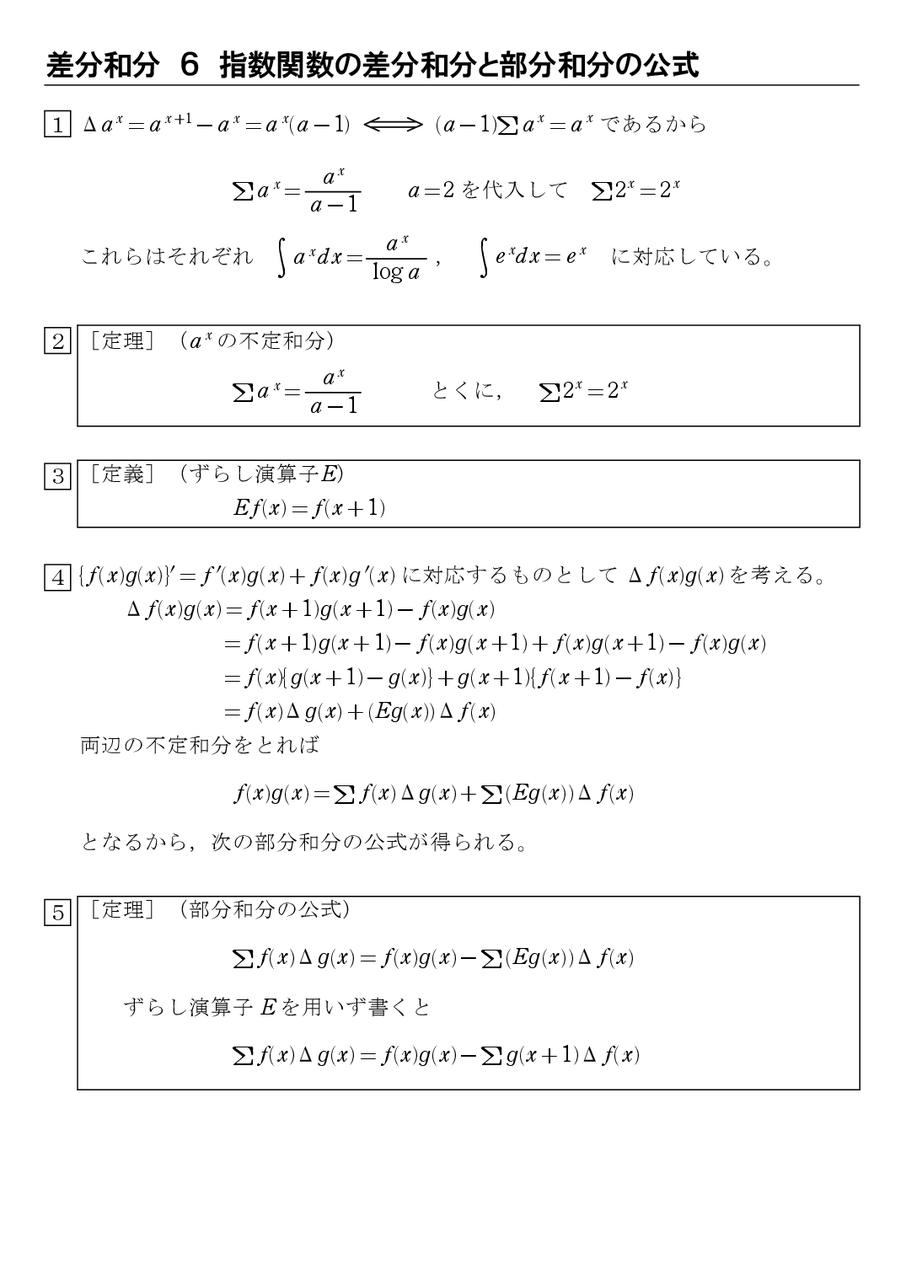 差分和分　６　指数関数の差分和分と部分和分の公式
1 Δa^x = a^{x+1} − a^x = a^x(a − 1) ⟺ (a − 1)∑a^x = a^x であるから
∑a^x = \frac{a^x}{a − 1}　　a = 2 を代入して　∑2^x = 2^x
これらはそれぞれ　∫a^x dx = \frac{a^x}{log a} ，　∫e^x dx = e^x　に対応している。
2 ［定理］（a^x の不定和分）
∑a^x = \frac{a^x}{a − 1}　　とくに，　∑2^x = 2^x
3 ［定義］（ずらし演算子E）
Ef(x) = f(x + 1)
4 {f(x)g(x)}′ = f′(x)g(x) + f(x)g′(x) に対応するものとして Δf(x)g(x) を考える。
Δf(x)g(x) = f(x + 1)g(x + 1) − f(x)g(x)
= f(x + 1)g(x + 1) − f(x)g(x + 1) + f(x)g(x + 1) − f(x)g(x)
= f(x){g(x + 1) − g(x)} + g(x + 1){f(x + 1) − f(x)}
= f(x)Δg(x) + (Eg(x))Δf(x)
両辺の不定和分をとれば
f(x)g(x) = ∑f(x)Δg(x) + ∑(Eg(x))Δf(x)
となるから，次の部分和分の公式が得られる。
5 ［定理］（部分和分の公式）
∑f(x)Δg(x) = f(x)g(x) − ∑(Eg(x))Δf(x)
ずらし演算子 E を用いず書くと
∑f(x)Δg(x) = f(x)g(x) − ∑g(x + 1)Δf(x)